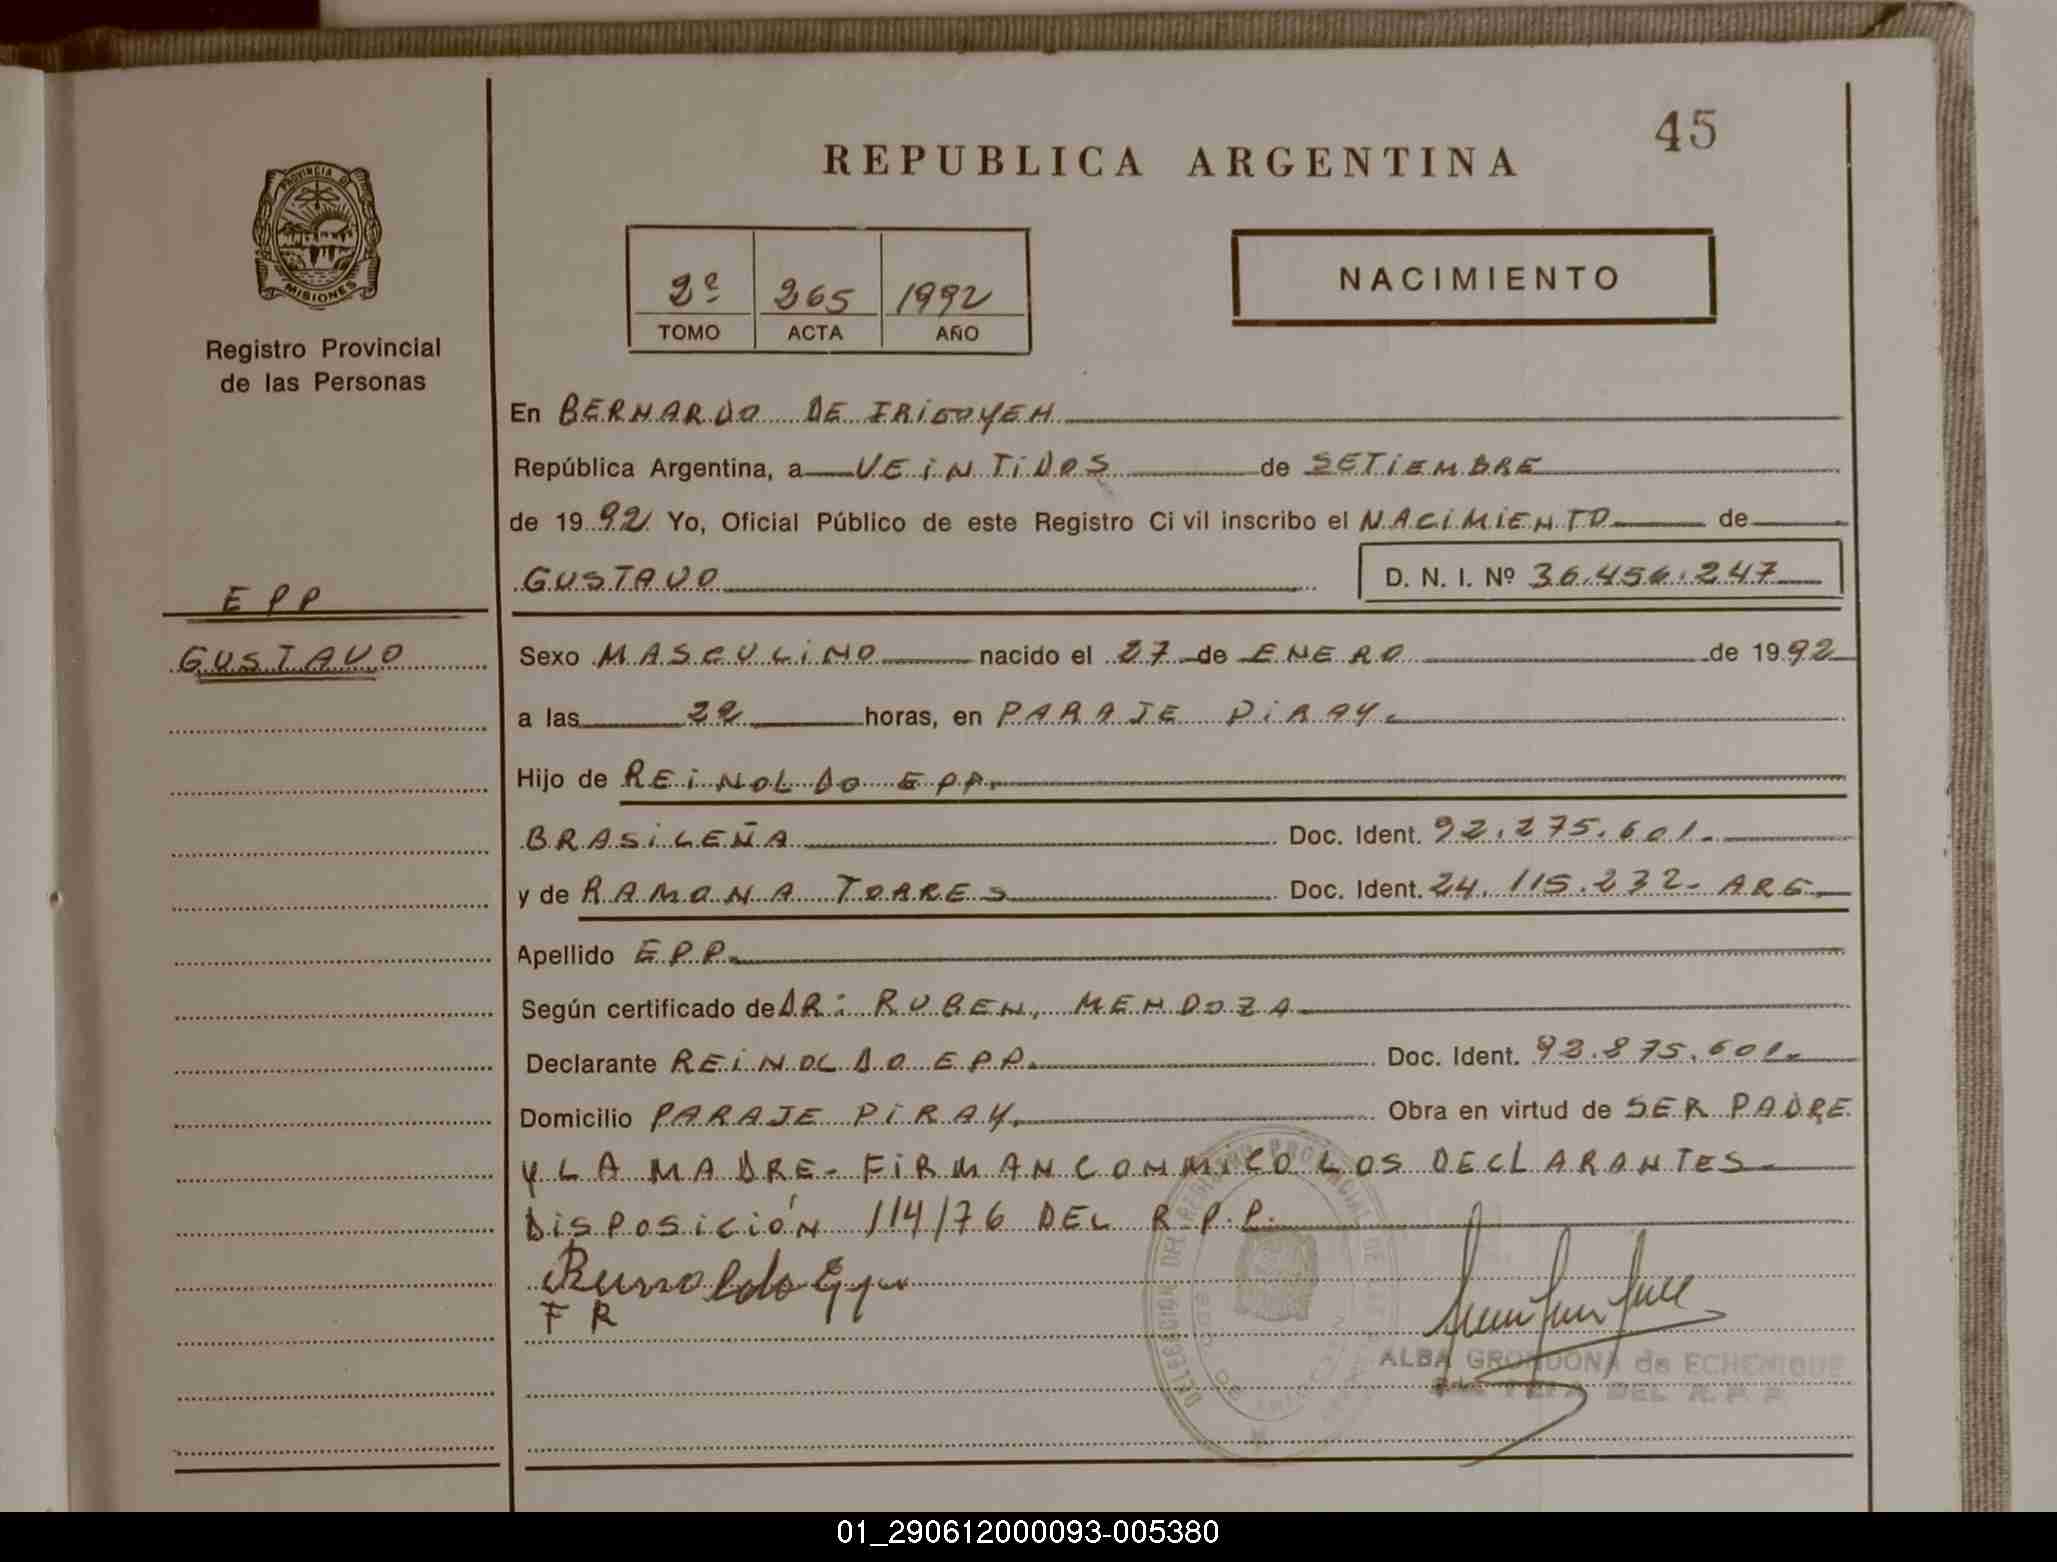 45
REPUBLICA ARGENTINA
PROVINCIA DE
MISIONES
Registro Provincial
de las Personas
2º 265 1992
TOMO ACTA AÑO
NACIMIENTO
En BERNARDO DE IRIGOYEN
República Argentina, a VEINTIDOS de SETIEMBRE
de 1992 Yo, Oficial Público de este Registro Civil inscribo el NACIMIENTO de
GUSTAVO D. N. I. Nº 36.456.247
EPP
GUSTAVO
Sexo MASCULINO nacido el 27 de ENERO de 1992
a las 22 horas, en PARAJE PIRAY.
Hijo de REINOLDO EPP.
BRASILEÑA Doc. Ident. 92.275.601.-
y de RAMONA TORRES Doc. Ident. 24.115.232- ARG.
Apellido EPP.
Según certificado de DR: RUBEN, MENDOZA
Declarante REINOLDO EPP. Doc. Ident. 92.875.601.-
Domicilio PARAJE PIRAY. Obra en virtud de SER PADRE
Y LA MADRE- FIRMAN CONMIGO LOS DECLARANTES-
DISPOSICIÓN 114/76 DEL R.P.P.
Reinoldo Epp
F R
ALBA GRONDONA de ECHENIQUE
DEL R. P. P.
01_290612000093-005380